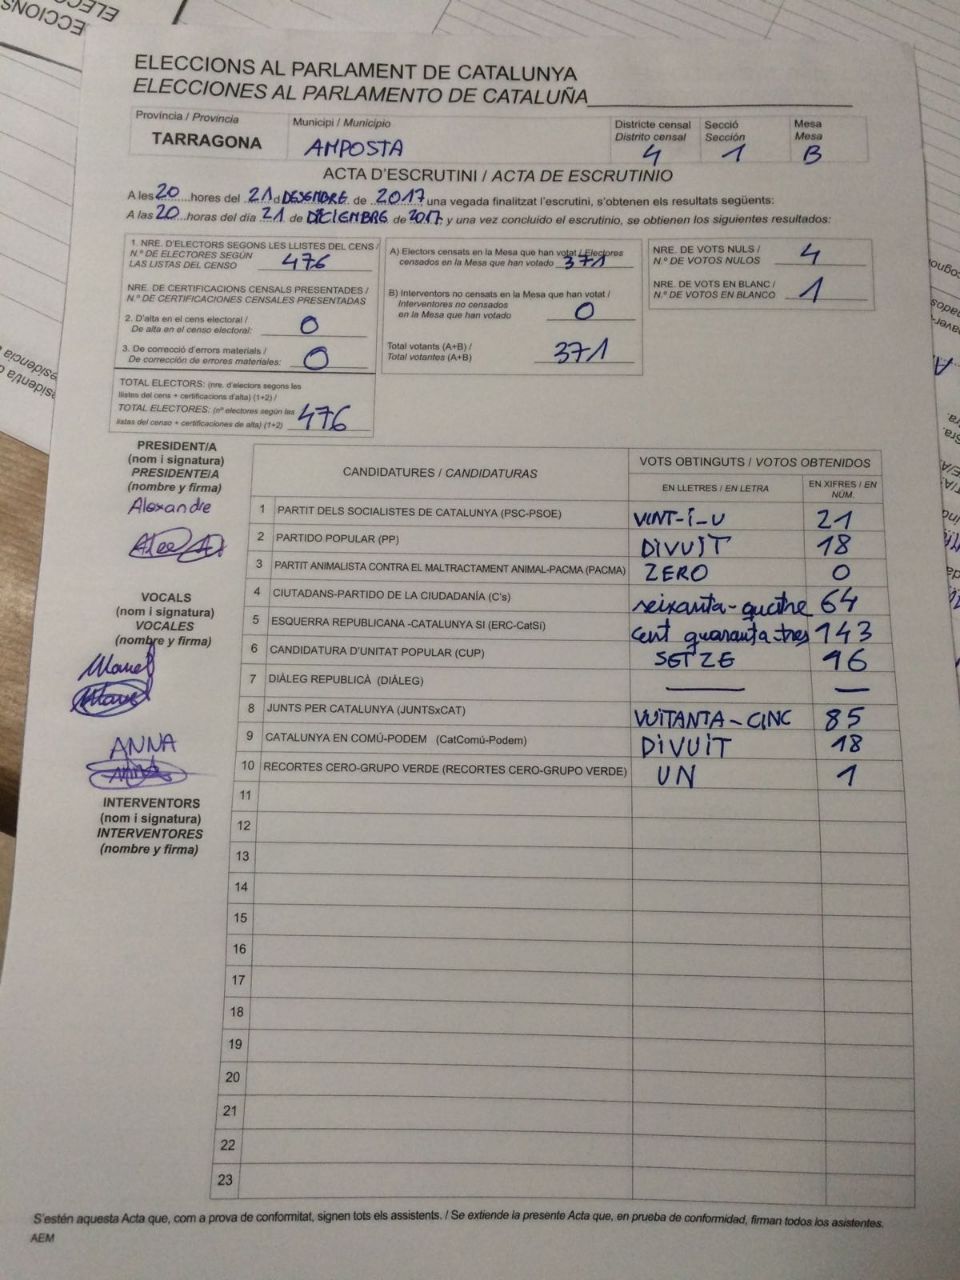 ELECCIONS AL PARLAMENT DE CATALUNYA
ELECCIONES AL PARLAMENTO DE CATALUÑA
Província / Provincia
TARRAGONA
Municipi / Municipio
AMPOSTA
Districte censal
Distrito censal
4
Secció
Sección
1
Mesa
Mesa
B
ACTA D'ESCRUTINI / ACTA DE ESCRUTINIO
A les 20 hores del 21 d DESEMBRE de 2017 una vegada finalitzat l'escrutini, s'obtenen els resultats següents:
A las 20 horas del día 21 de DICIEMBRE de 2017 y una vez concluido el escrutinio, se obtienen los siguientes resultados:
1. NRE. D'ELECTORS SEGONS LES LLISTES DEL CENS /
N.º DE ELECTORES SEGÚN
LAS LISTAS DEL CENSO 476
NRE. DE CERTIFICACIONS CENSALS PRESENTADES /
N.º DE CERTIFICACIONES CENSALES PRESENTADAS
2. D'alta en el cens electoral /
De alta en el censo electoral: 0
3. De correcció d'errors materials /
De corrección de errores materiales: 0
TOTAL ELECTORS: (nre. d'electors segons les
llistes del cens + certificacions d'alta) (1+2) /
TOTAL ELECTORES: (nº electores según las
listas del censo + certificaciones de alta) (1+2) 476
A) Electors censats en la Mesa que han votat / Electores
censados en la Mesa que han votado 371
B) Interventors no censats en la Mesa que han votat /
Interventores no censados
en la Mesa que han votado 0
Total votants (A+B) /
Total votantes (A+B) 371
NRE. DE VOTS NULS /
N.º DE VOTOS NULOS 4
NRE. DE VOTS EN BLANC /
N.º DE VOTOS EN BLANCO 1
PRESIDENT/A
(nom i signatura)
PRESIDENTE/A
(nombre y firma)
Alexandre
VOCALS
(nom i signatura)
VOCALES
(nombre y firma)
Manel
ANNA
INTERVENTORS
(nom i signatura)
INTERVENTORES
(nombre y firma)
CANDIDATURES / CANDIDATURAS
VOTS OBTINGUTS / VOTOS OBTENIDOS
EN LLETRES / EN LETRA
EN XIFRES / EN NÚM.
1 PARTIT DELS SOCIALISTES DE CATALUNYA (PSC-PSOE) VINT-I-U 21
2 PARTIDO POPULAR (PP) DIVUIT 18
3 PARTIT ANIMALISTA CONTRA EL MALTRACTAMENT ANIMAL-PACMA (PACMA) ZERO 0
4 CIUTADANS-PARTIDO DE LA CIUDADANÍA (C's) seixanta-quatre 64
5 ESQUERRA REPUBLICANA -CATALUNYA SI (ERC-CatSí) cent quaranta-tres 143
6 CANDIDATURA D'UNITAT POPULAR (CUP) SETZE 16
7 DIÀLEG REPUBLICÀ (DIÀLEG) — —
8 JUNTS PER CATALUNYA (JUNTSxCAT) VUITANTA-CINC 85
9 CATALUNYA EN COMÚ-PODEM (CatComú-Podem) DIVUIT 18
10 RECORTES CERO-GRUPO VERDE (RECORTES CERO-GRUPO VERDE) UN 1
11
12
13
14
15
16
17
18
19
20
21
22
23
S'estén aquesta Acta que, com a prova de conformitat, signen tots els assistents. / Se extiende la presente Acta que, en prueba de conformidad, firman todos los asistentes.
AEM